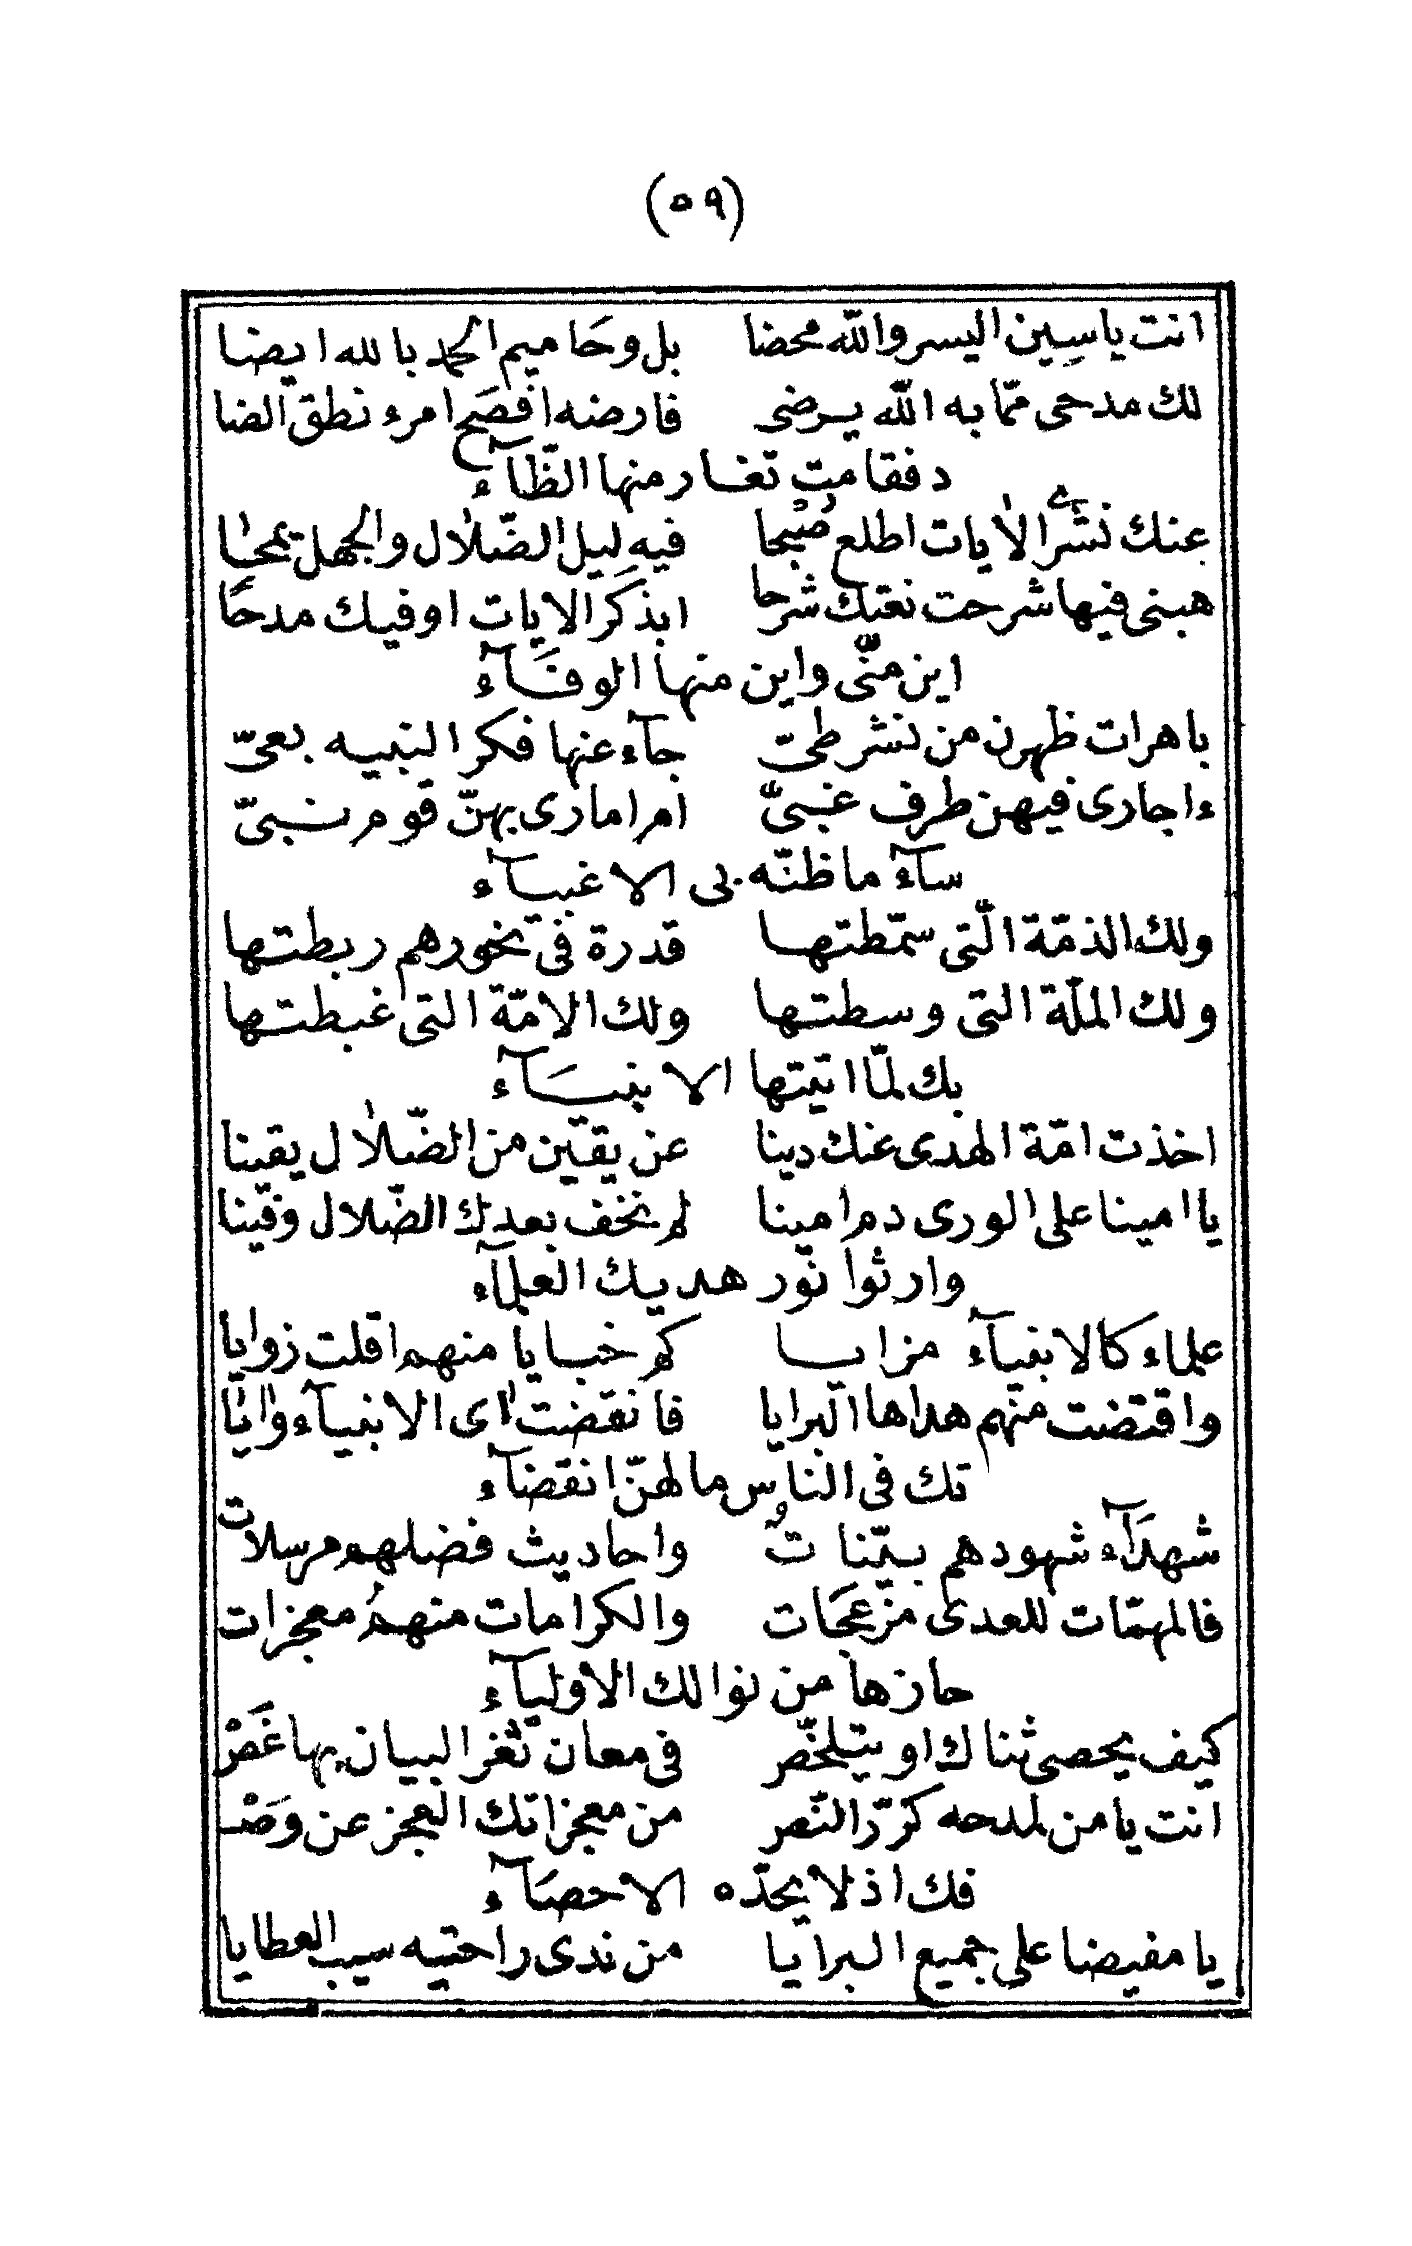 (٥٩)
انت ياسين اليسر والله محضا بل وحاميم الحمد بالله ايضا
لك مدحى ممّا به الله يرضى فارضه افصح امرء نطق الضا
د فقامت تغار منها الظّآء
عنك نشرى الاٰيات اطلع صُبحا فيه ليل الضّلال والجهل يمحٰا
هبنى فيها شرحت نعتك شرحا ابذكر الايات اوفيك مدحًا
اين منّى واين منها الوفَآء
باهرات ظهرن من نشر طىّ جآء عنها فكر النبيه بعىّ
ءاجارى فيهن طرف غبىّ امراماارى بهنّ قوم نبىّ
سآء ما ظنّه بى الاغبيآء
ولك الذمّة الّتى سمّطتها قدرة فى نحورهم ربطتها
ولك الملّة التى وسطتها ولك الامّة التى غبطتها
بك لمّا اتيتها الانبيَآء
اخذت امّة الهدى عنك دينا عن يقيّن من الضّلاٰل يقينا
يا امينا على الورى دم امينا لم نخف بعدك الضّلال وفّينا
وارثوا نّور هديك العلمآء
علماء كالانبيآء مزايا كم خبايا منهم اقلت زوايا
واقتضت منّهم هداها البرايا فانقضت اٰى الانبيآء واٰيٰا
تك فى الناس ما لهنّ انقضآء
شهدَآء شهودهم بيّناتُ واحاديث فضلهم مرسلات
فالمهمّات للعدى مزّعجَات والكرامات منهمُ معجزات
حازها من نوالك الاوليآء
كيف يحصى ثناك او يتلخّص فى معان ثّغر البيان بها غَصْ
انت يا من لمدحه كرّر النّص من معجزاتك العجز عن وَصْـ
فك اذ لا يحدّه الاحصَآء
يا مفيضا على جميع البرايا من ندى راحتيه سيب العطايا